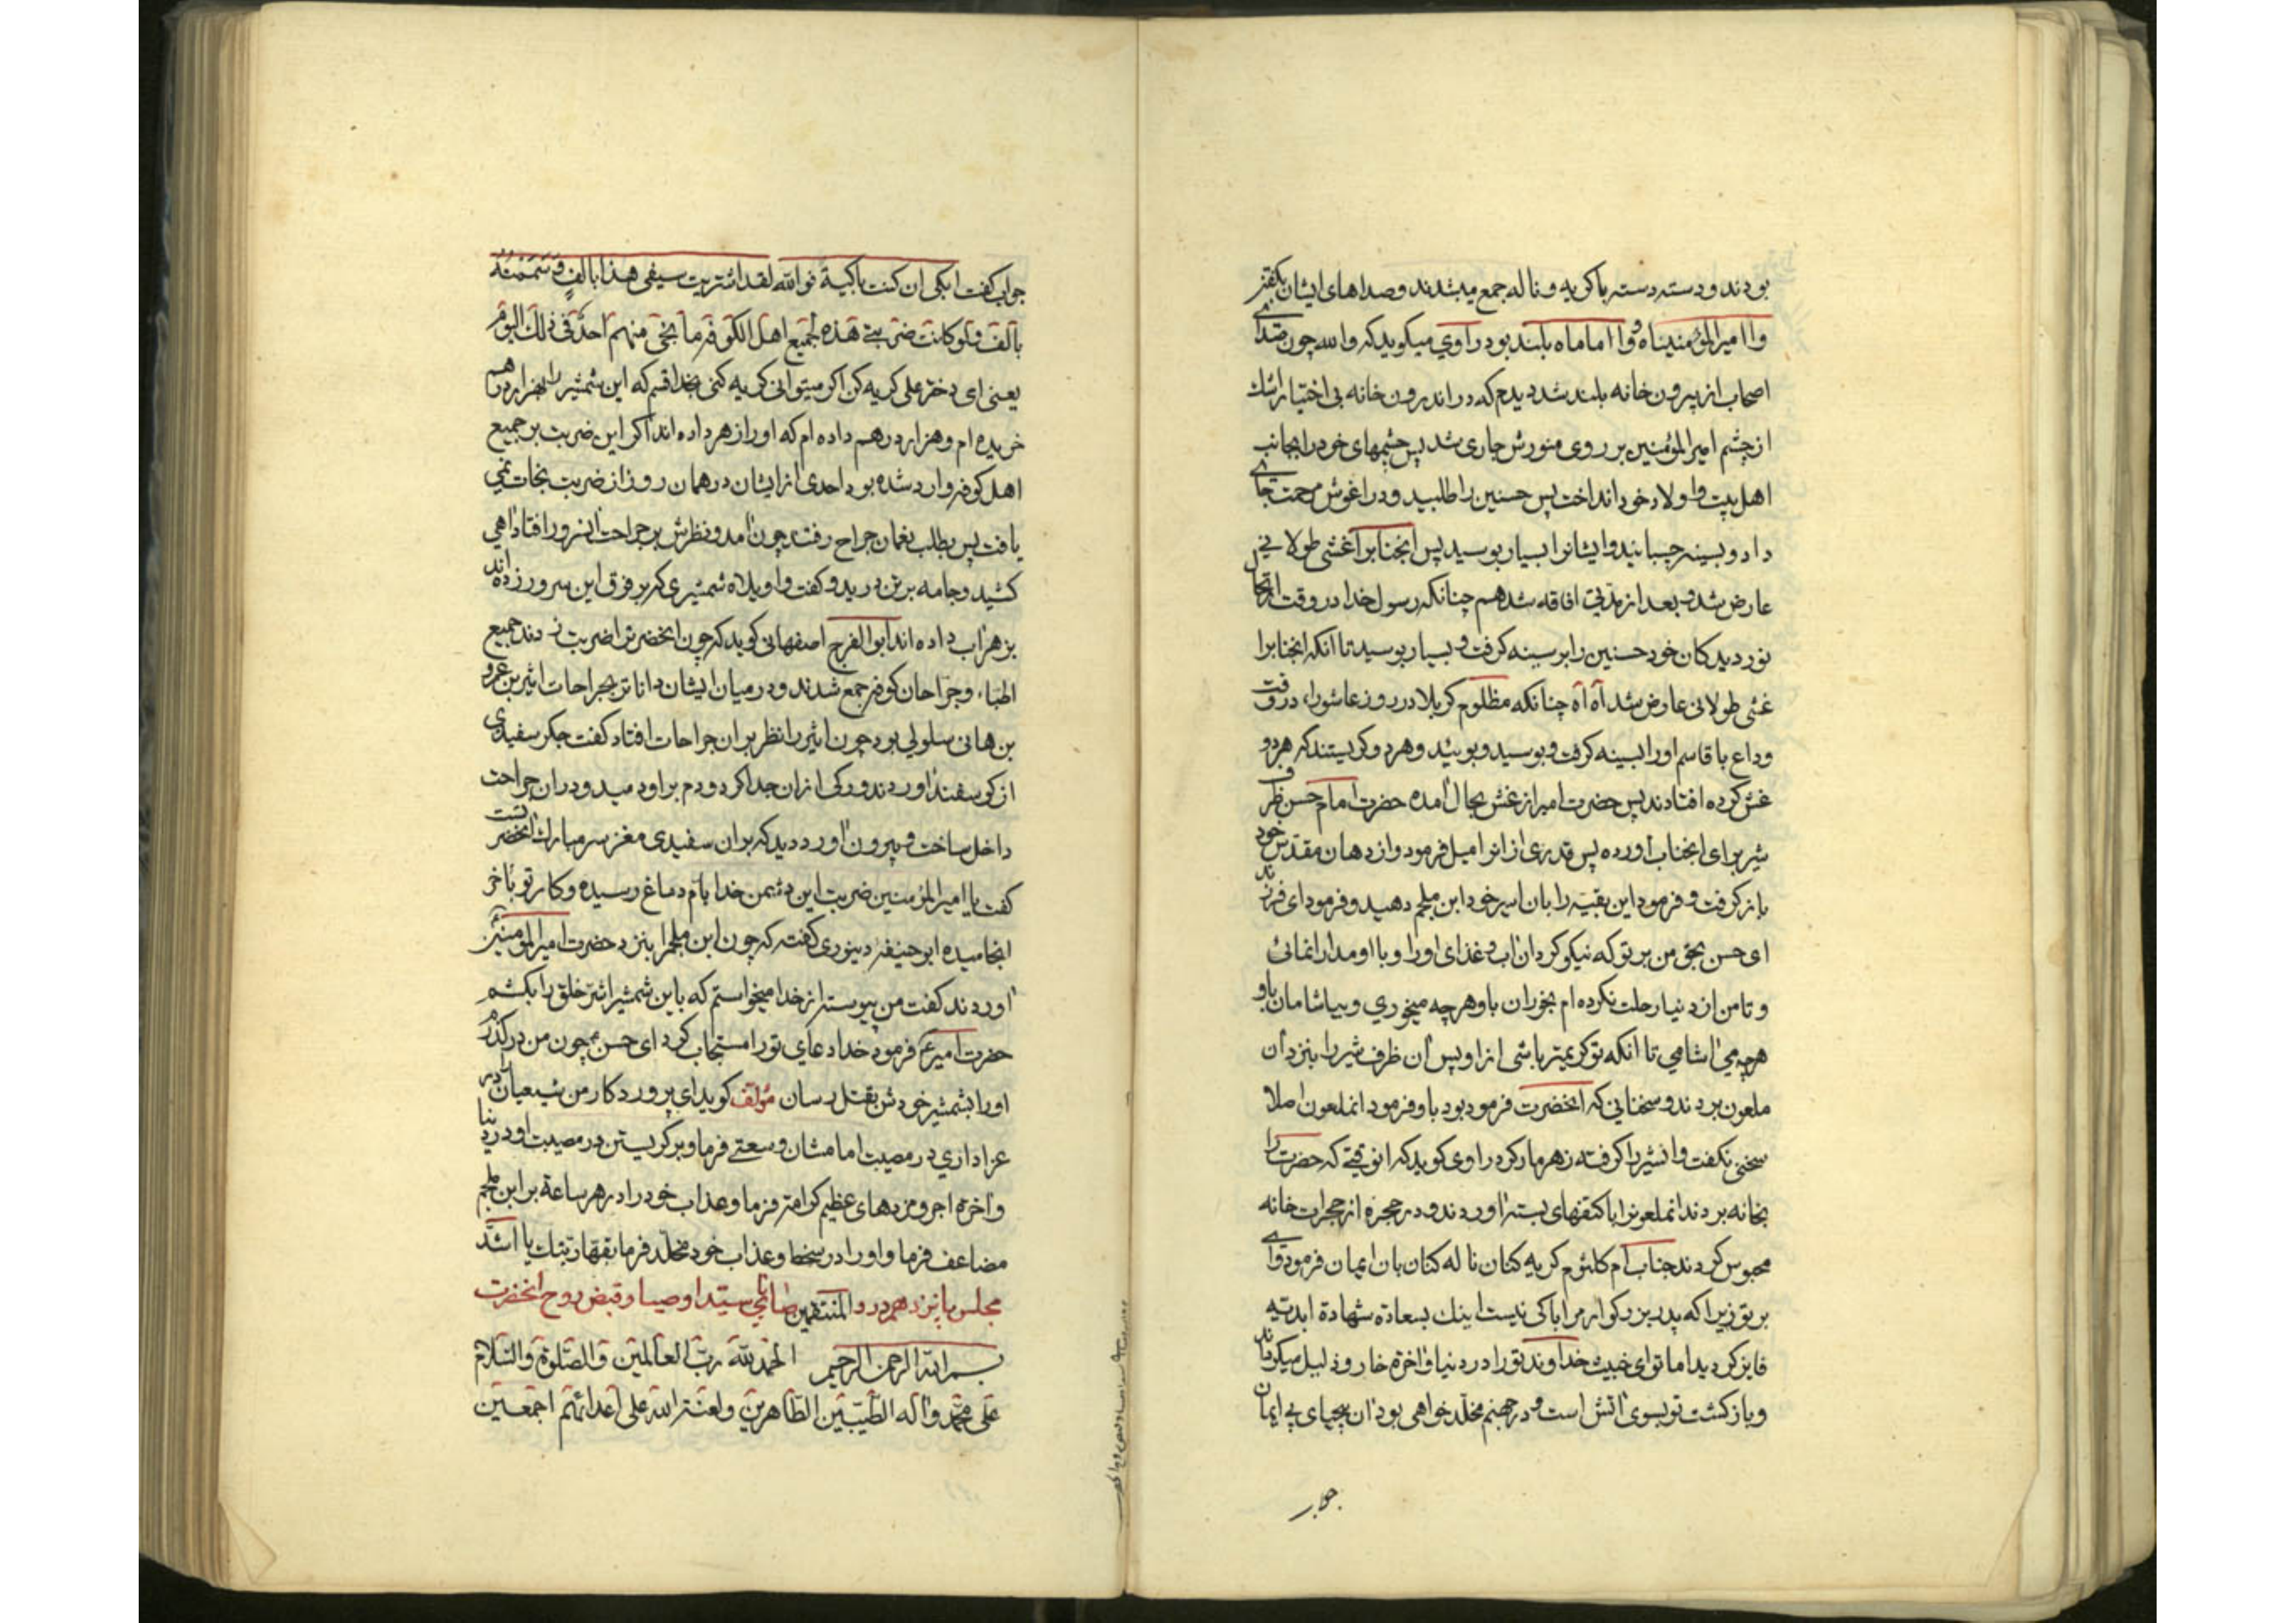 بودند و دسته دسته با کریه و ناله جمع میشدند و صداهای ایشان بکفتن
وا امیرالمؤمنیناه و وا اماماه بلند بود راوی میکوید که والله چون صدای
اصحاب از بیرون خانه بلند شد دیدم که در اندرون خانه بی اختیار اشك
از چشم امیرالمؤمنین بر روی منورش جاری شد پس چشمهای خود را بجانب
اهل بیت و اولاد خود انداخت پس حسنین را طلبید و در اغوش مرحمت جای
داد و بسینه چسبانید و ایشانرا بسیار بوسید پس انجنابرا غشی طولانی
عارض شد و بعد از مدتی افاقه شد هم چنانکه رسول خدا در وقت ارتحال
نور دیدکان خود حسنین را بر سینه کرفت و بسیار بوسید تا آنکه انجنابرا
غشی طولانی عارض شد آه آه چنانکه مظلوم کربلا در روز عاشورا، در وقت
وداع با قاسم او را بسینه کرفت و بوسید و بوئید و هر دو کریستند که هر دو
غش کرده افتادند پس حضرت امیر از غش بحال آمده حضرت امام حسن ظرف
شیر برای انجناب آورده پس قدری از انرا میل فرمود و از دهان مقدس خود
باز کرفت و فرمود این بقیه را بان اسیر خود ابن ملجم دهید و فرمود ای فرزند
ای حسن بحق من بر تو که نیکو کردان آب و غذای او را و با او مدارا نمائی
و تا من از دنیا رحلت نکرده ام بخوران باو هر چه میخوری و بیاشامان باو
هر چه می آشامی تا آنکه تو کریمتر باشی از او پس آن ظرف شیر را بنزد آن
ملعون بردند و سخنانی که انحضرت فرموده بود باو فرمود انملعون اصلا
سخنی نکفت و انشیر را کرفته زهر مار کرد راوی کوید که انوقتی که حضرت را
بخانه بردند انملعونرا با کتفهای بسته آوردند و در حجره از حجرات خانه
محبوس کردند جناب ام کلثوم کریه کنان ناله کنان بان بی ایمان فرمود وای
بر تو زیرا که پدر بزرکوار مرا باکی نیست اینك بسعادة شهادة ابدیه
فایز کردید اما تو ای خبیث خداوند تو را در دنیا و اخرة خار و ذلیل میکرداند
و بازکشت تو بسوی آتش است و در جهنم مخلد خواهی بود آن بیحیای بی ایمان
جواب
جواب کفت ابکی ان کنت باکیة فوالله لقد اشتریت سیفی هذا بالف و سممته
بالف و لو کانت ضربتی هذه لجمیع اهل الکوفة ما نجی منهم احد فی ذلك الیوم
یعنی ای دختر علی کریه کن اکر میتوانی کریه کنی بخدا قسم که این شمشیر را بهزار درهم
خریده ام و هزار درهم داده ام که او را زهر داده اند اکر این ضربت بر جمیع
اهل کوفه وارد شده بود احدی از ایشان در همان روز از ضربت نجات نمی
یافت پس بطلب نعمان جراح رفتند چون آمد و نظرش بر جراحت انسرور افتاد آهی
کشید و جامه بر تن درید و کفت واویلاه شمشیری که بر فرق این سرور زده اند
بزهر آب داده اند ابوالفرج اصفهانی کوید که چون انحضرترا ضربت زدند جمیع
اطباء و جراحان کوفه جمع شدند و در میان ایشان داناتر بجراحات اثیر بن عمرو
بن هانی سلولی بود چون اثیر را نظر بر ان جراحات افتاد کفت جکر سفیدی
از کوسفند آوردند و رکی از ان جدا کرد و دم بر او دمید و در ان جراحت
داخل ساخت و بیرون آورد دید که بر ان سفیدی مغز سر مبارك انحضرتست
کفت یا امیرالمؤمنین ضربت این دشمن خدا بام دماغ رسیده و کار تو باخر
انجامیده ابوحنیفه دینوری کفته که چون ابن ملجم را بنزد حضرت امیرالمؤمنین
آوردند کفت من پیوسته از خدا میخواستم که باین شمشیر اشر خلق را بکشم
حضرت امیر ع فرمود خدا دعای تو را مستجاب کرد ای حسن چون من درکذرم
او را بشمشیر خودش بقتل رسان مؤلف کوید ای پروردکار من شیعیانرا در
عزاداری در مصیبت امامشان وسعتی فرما و بر کریستن در مصیبت او در دنیا
و آخرة اجر و مزدهای عظیم کرامت فرما و عذاب خود را در هر ساعة بر ابن ملجم
مضاعف فرما و او را در سخط و عذاب خود مخلد فرما بقهاریتك یا اشد
المنتقمین
مجلس پانزدهم در وصایای سید اوصیا و قبض روح انحضرت
بسم الله الرحمن الرحیم الحمد لله رب العالمین و الصلوة و السلام
علی محمد و آله الطیبین الطاهرین و لعنة الله علی اعدائهم اجمعین